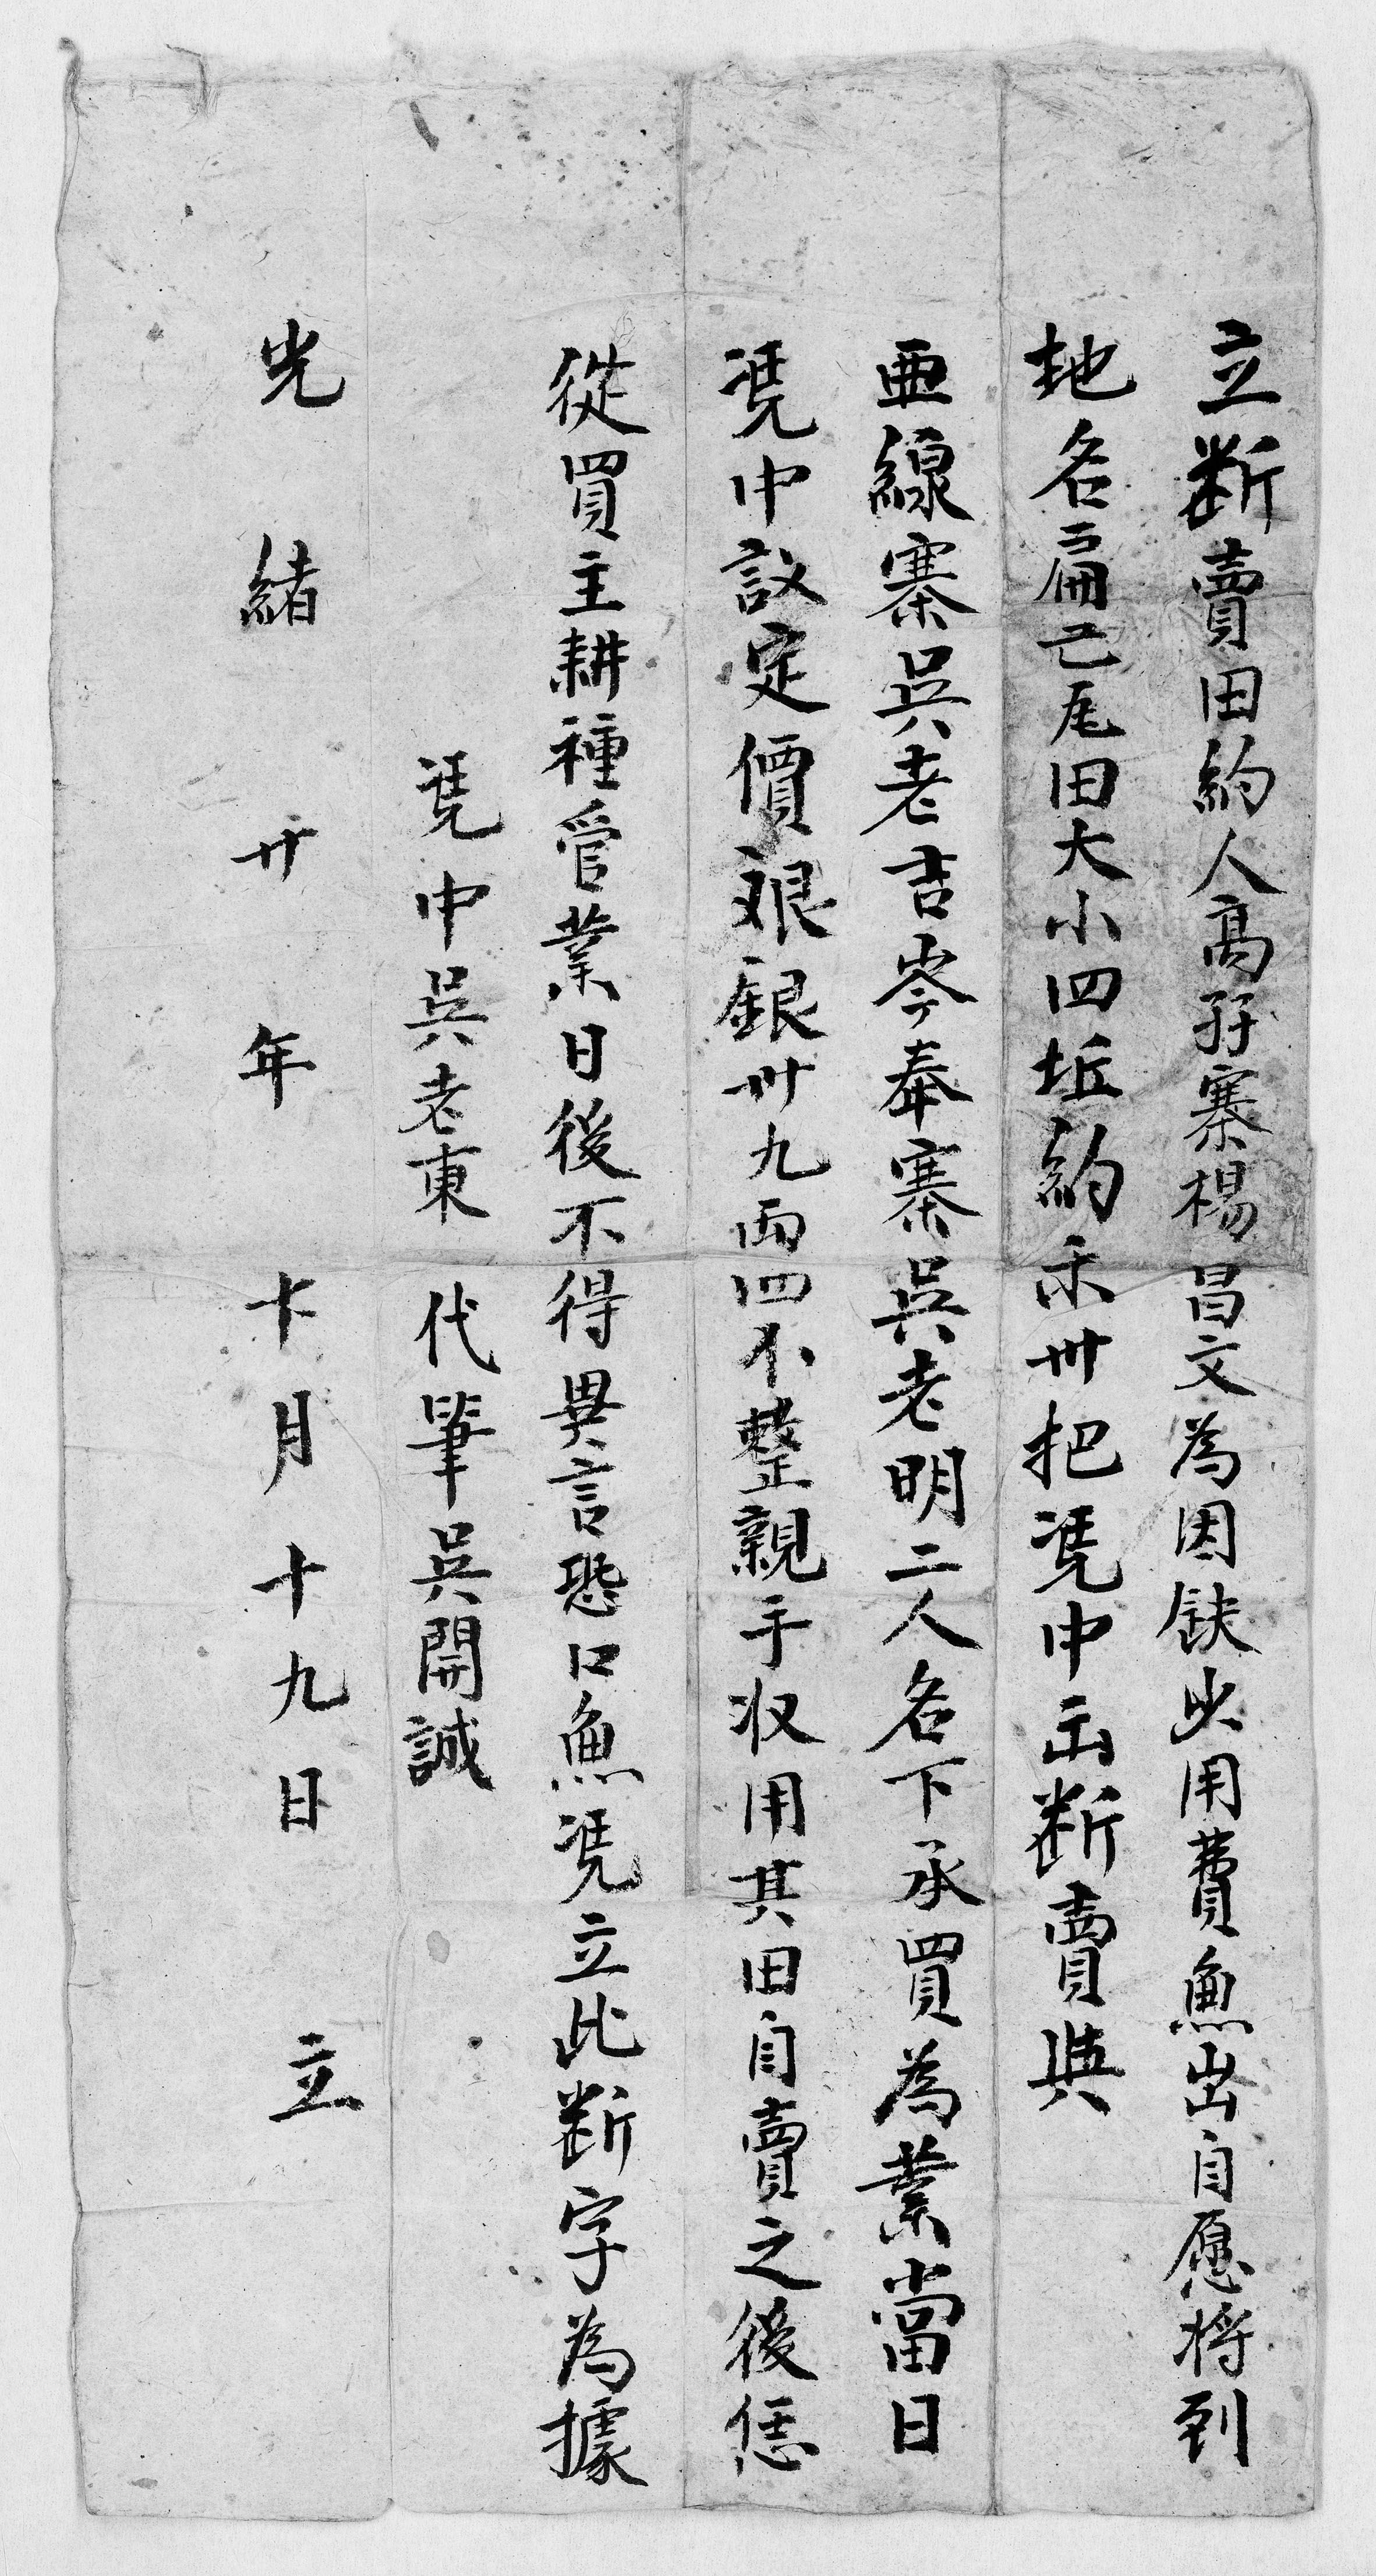 立断賣田約人高孖寨楊昌文為因缺少用費無出自愿将到
地名扁亡尾田大小四坵約禾卅把凴中出断賣與
亜線寨吳老吉岑奉寨吳老明二人名下承買為業當日
凴中議定價艮銀卅九両四不整親手收用其田自賣之後恁
從買主耕種管業日後不得異言恐口無凴立此断字為據
凴中吳老東 代筆吳開誠
光緒廿年十月十九日 立